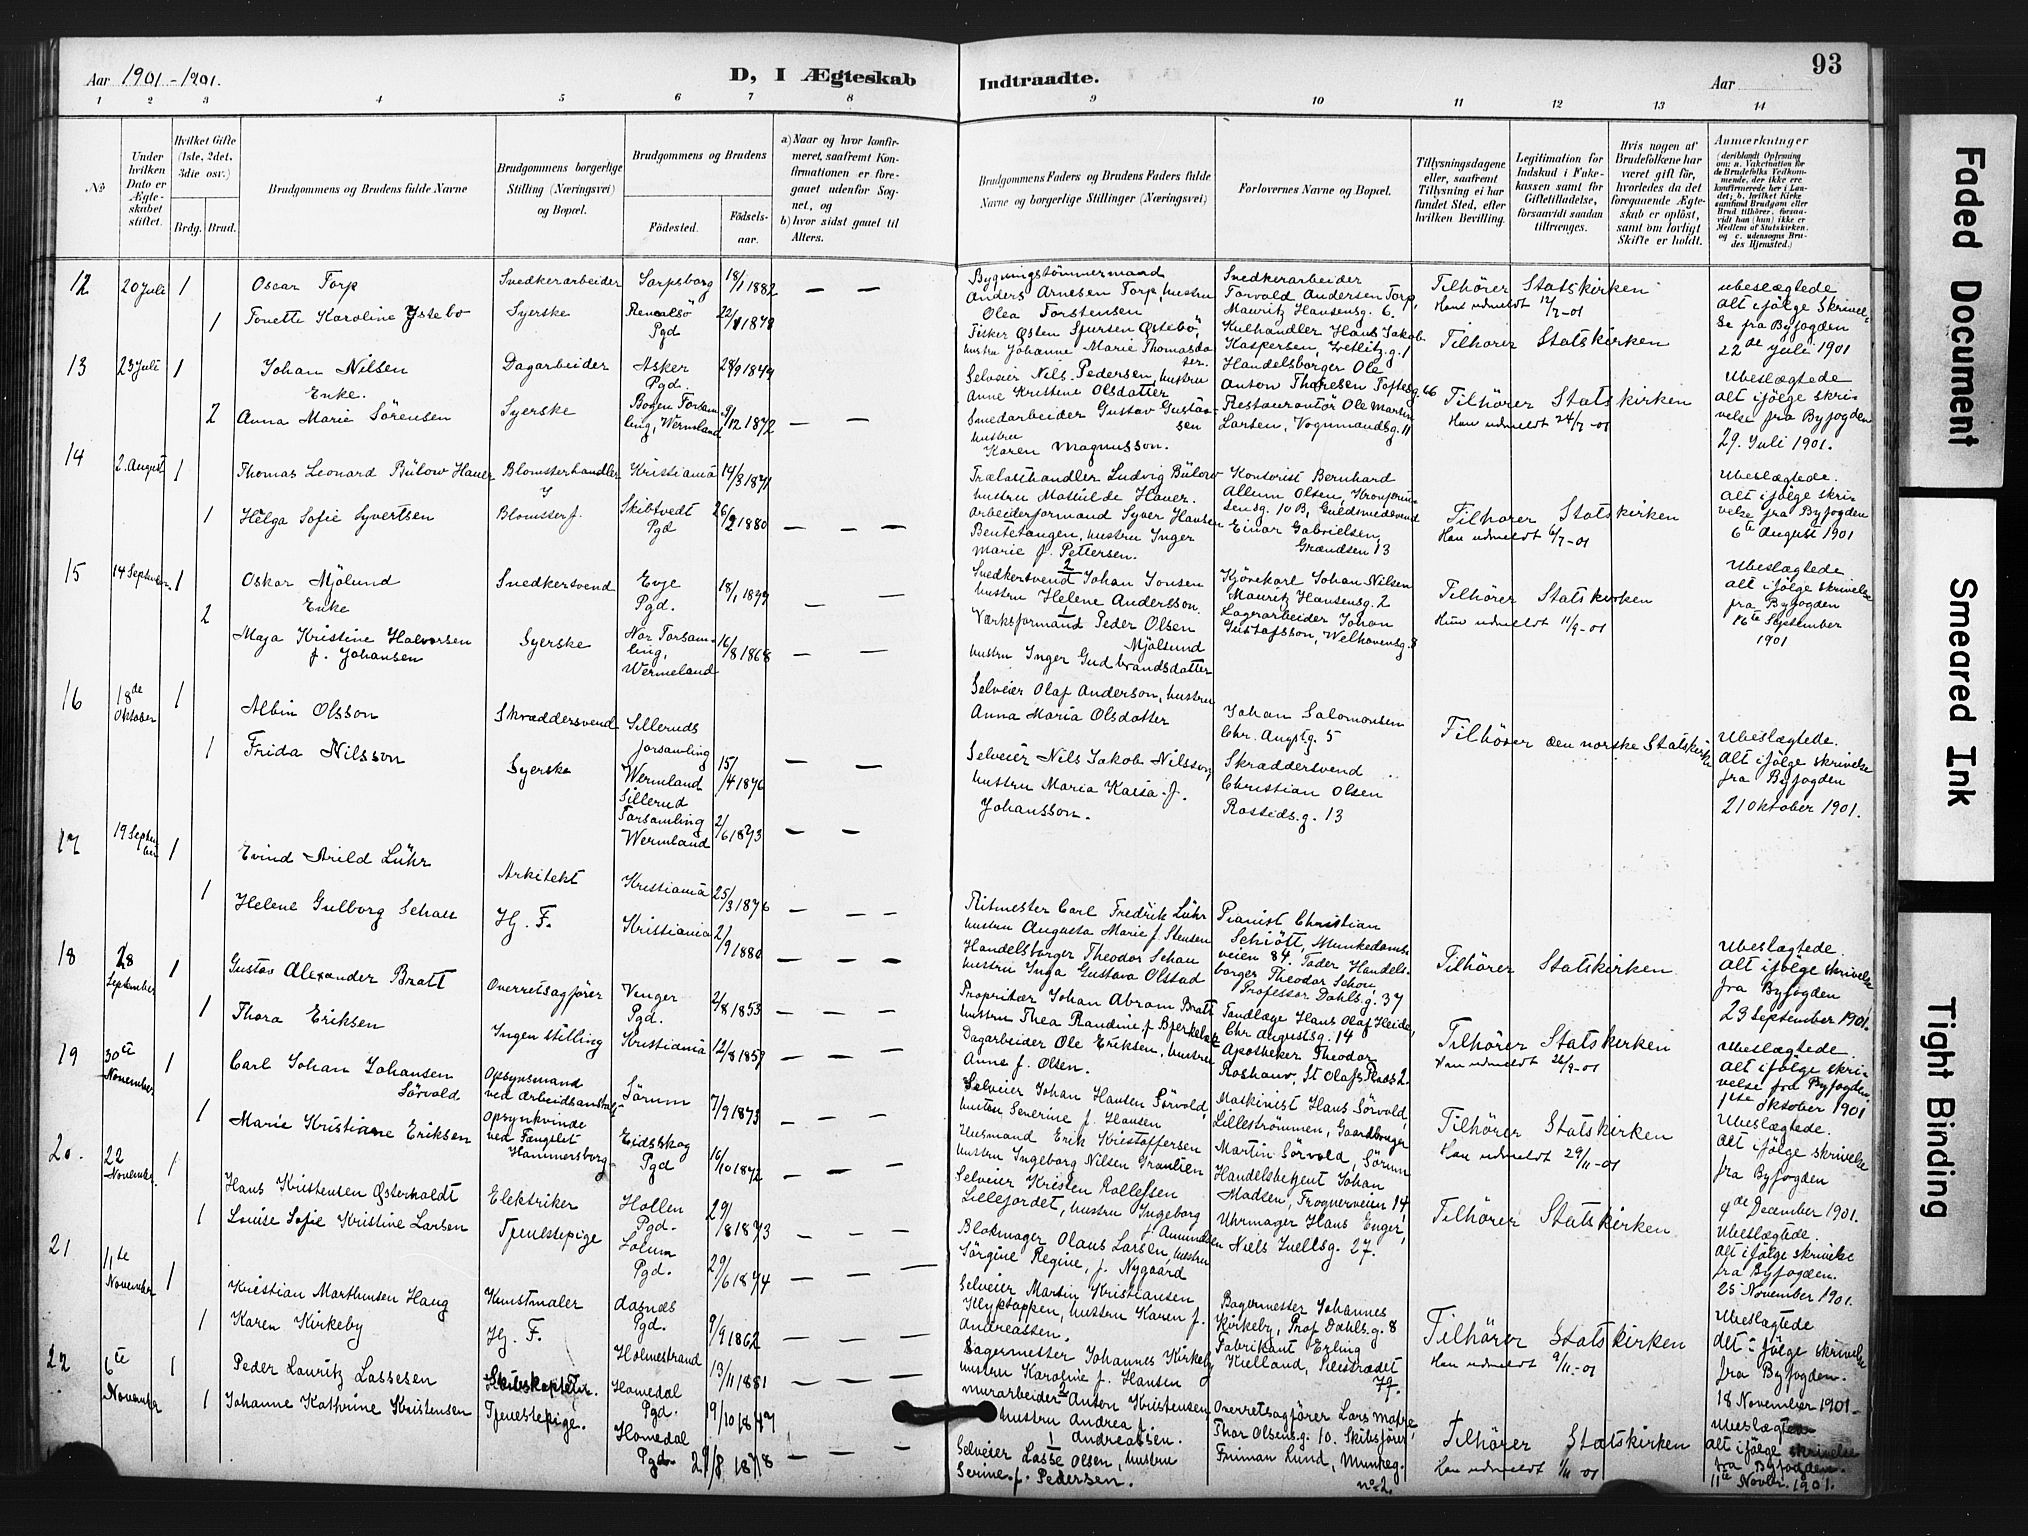 Aar 1901-1901.
D, I Ægteskab
Indtraadte.
Aar
93
1 2 3 4 5 6 7 8
9 10 11 12 13 14
No
Under hvilken Dato er Ægteskabet stiftet.
Hvilket Gifte (1ste, 2det, 3die osv.)
Brdg. Brud.
Brudgommens og Brudens fulde Navne
Brudgommens borgerlige Stilling (Næringsvei) og Bopæl.
Brudgommens og Brudens
Fødested.
Fødselsaar.
a) Naar og hvor konfirmeret, saafremt Konfirmationen er foregaaet udenfor Sognet, og
b) hvor sidst gaaet til Alters.
Brudgommens Faders og Brudens Faders fulde Navne og borgerlige Stillinger (Næringsvei)
Forlovernes Navne og Bopæl.
Tillysningsdagene eller, saafremt Tillysning ei har fundet Sted, efter hvilken Bevilling.
Legitimation for Indskud i Enkekassen samt for Giftetilladelse, forsaavidt saadan tiltrænges.
Hvis nogen af Brudefolkene har været gift før, hvorledes da det foregaaende Ægteskab er opløst, samt om lovligt Skifte er holdt.
Anmærkninger
(deriblandt Oplysning om: a. Vakcination for de Brudefolks Vedkommende, der ikke ere konfirmerede her i Landet; b. hvilket Kirkesamfund Brudgom eller Brud tilhører, forsaavidt han (hun) ikke er Medlem af Statskirken, og c. udensogns Brudes Hjemsted.)
12 20 Juli 1 Oscar Torp Snedkerarbeider Sarpsborg 18/1 1882
1 Tonette Karoline Ystebø Syerske Pgd
Bygningstømmermand
Anders Arnesen Torp, hustru
Olea Torstensen
hustru Johanne Marie Thomasda
ter.
Snedkerarbeider
Torvald Andersen Torp,
Mauritz Hansensg. 6.
Kulhandler Hans Jakob
Kaspersen, Wetlitz.g. 1
Tilhører Statskirken
Hans udmeldt 12/7-01
Tilhører Statskirken
ubeslægtede
alt ifølge Skrivel-
se fra Byfogden
22de Juli 1901
13 23 Juli 1 Johan Nilsen Dagarbeider Asker Pgd. 28/9 1849
Enke.
2 Anna Marie Sörensen Syerske Bogen Forsam
ling, Wermland 9/12 1872
Selveier Nels Pedersen, hustru
Anne Kristine Olsdatter
Smedarbeider Gustav Gustav-
sen
hustru
Karen Magnusson.
Handelsborger Ole
Anton Thoresen Toftesg. 66
Restauratör Ole Martin
Larsen, Vognmandsg. 11
Tilhører Statskirken
Han udmeldt 24/7-01
Ubeslægtede
alt ifølge skri-
velse fra Byfogden
29. Juli 1901.
14 2. August 1 Thomas Leonard Bülow Hauer Blomsterhandler Kristiania 14/3 1871
1 Helga Sofie Syvertsen Blomsterf. Skibtvedt Pgd 26/2 1880
Trælasthandler Ludvig Bülow
hustru Mathilde Hauer.
Arbeiderformand Syver Hansen
Bentetangen, hustru Inger
Marie f. Pettersen.
Kontorist Bernhard
Allum Olsen,
sensg. 10 B, Guldsmedsvend
Einar Gabrielsen,
Grændsen 13
Tilhører Statskirken
Han udmeldt 6/7-01
Ubeslægtede.
alt ifølge skri-
velse fra Byfogden
6te August 1901
15 14 September 1 Oskar Mjølund Snedkersvend Evje Pgd. 18/1 1879
Enke
2 Maja Kristine Halvorsen
f. Johansen Syerske Nor Forsam-
ling, Wermeland 16/8 1868
2
Snedkersvend Johan Jonsen
hustru Helene Andersson.
1
Værksformand Peder Olsen
Mjølsund
hustru Inger Gudbrandsdatter
Kjørekarl Johan Nilsen
Mauritz Hansensg. 2
Lagerarbeider Johan
Gustafsson, Welhavensg. 8
Tilhører Statskirken
Hun udmeldt 11/9-01
Ubeslægtede
alt ifølge skrivelse
fra Byfogden
16te September
1901
16 18de Oktober 1 Albin Olsson Skræddersvend Silleruds
forsamling
Wermland 15/4 1876
1 Frida Nilsson Syerske Sillerud
Forsamling
Wermland 2/6 1873
Selveier Olaf Anderson, hustru
Anna Maria Olsdatter
Selveier Nils Jakob Nilsson,
hustru Maria Kaisa f.
Johansson.
Johan Salomonsen
Chr. Augstg. 5
Skræddersvend
Christian Olsen
Rostedsg. 13
Tilhører den norske Statskirke
Ubeslægtede.
alt ifølge skrivelse
fra Byfogden
21 Oktober 1901.
17 19 September 1 Evind Arild Lühr Arkitekt Kristiania 25/3 1876
1 Helene Gulborg Schau Hj. F. Kristiania 2/9 1880
Ritmester Carl Fredrik Lühr
hustru Augusta Marie f. Stensen
Handelsborger Theodor Schau
hustru Inga Gustava Olstad
Pianist Christian
Schiött, Munkedams-
veien 84. Fader Handels-
borger Theodor Schou,
Professor Dahls.g. 37
Tilhører Statskirken
Ubeslægtede
alt ifølge skrivelse
fra Byfogden
23 September 1901.
18 28 September 1 Gustav Alexander Bratt Overretsagfører Vinger Pgd. 2/8 1853
1 Thora Eriksen Ingen stilling Kristiania 12/8 1859
Proprietær Johan Abram Bratt
hustru Thea Randine f Bjerkebæk
Dagarbeider Ole Eriksen, hustru
Anne f. Olsen.
Tandlæge Hans Olaf Heide,
Chr. Augustsg. 14
Apotheker Theodor
Roshauw, St Olafs Plads 2.
Tilhører Statskirken
Han udmeldt 26/9-01
Ubeslægtede
alt ifølge skri-
velse fra Byfogden,
1ste Oktober 1901
19 30te November 1 Carl Johan Johansen
Sørvold Opsynsmand
ved Arbeidsanstalt Sørum 7/9 1873
1 Marie Kristiane Eriksen Opsynkvinde
ved Fængslet
Hammersborg Eidsskog Pgd 16/10 1872
Selveier Johan Hansen Sørvold,
hustru Severine f. Hansen
Husmand Erik Kristoffersen
hustru Ingeborg Nilsen Granlien
Maskinist Hans Sørvold,
Lillestrømmen, Gaardbruger
Martin Sørvold, Sørum
Tilhører Statskirken
Han udmeldt 29/11-01
Ubeslægtede.
alt ifølge skrivelse
fra Byfogden
4de December 1901.
20. 22 November. 1 Hans Kristensen Østerholdt Elektriker Hollen Pgd. 29/8 1873
1 Louise Sofie Kristine Larsen Tjenestepige Solum Pgd. 29/6 1874
Selveier Kristen Rollefsen
Lillejordet, hustru Ingeborg
f. Amundsen
Blokmager Olaus Larsen, hustru
Jørgine Regine, f. Nygaard
Handelsbetjent Johan
Madsen, Frognerveien 14,
Uhrmager Hans Enger,
Niels Juelsg. 27.
Tilhører Statskirken
Ubeslægtede.
alt ifølge skrivelse
fra Byfogden.
25 November 1901.
21 11te November 1 Kristian Marthinsen Haug Kunstmaler Pgd. 9/9 1862
1 Karen Kirkeby Hj. F. Holmestrand 13/11 1881
Selveier Martin Kristiansen
hustru Karen f.
Andreassen.
Bagermester Johannes Kirkeby
hustru Karoline f. Hansen
Bagermester Johannes
Kirkeby, Prof Dahls.g. 8
Fabrikant Erling
Kielland, Pilestrædet
77.
Tilhører Statskirken
Han udmeldt 9/11-01
Ubeslægtede
alt ifølge skrivelse
fra Byfogden.
18 November 1901.
22 6te November 1 Peder Lauritz Lassesen Homedal Pgd. 19/10 1847
1 Johanne Kathrine Kristensen Tjenestepige. Homedal Pgd. 29/8 1878
2
Murarbeider Anton Kristensen
hustru Andrea f.
Andreassen.
1
Selveier Lasse Olsen, hustru
Serine f. Pedersen.
Overretsagfører Lars Matre,
Thor Olsensg. 10. Skibsfører
Friman Lund, Munkeg.
no 2.
Tilhører Statskirken
Han udmeldt 1/11-01
Ubeslægtede
alt ifølge skrivelse
fra Byfogden.
11te Novbr. 1901.
Faded Document
Smeared Ink
Tight Binding